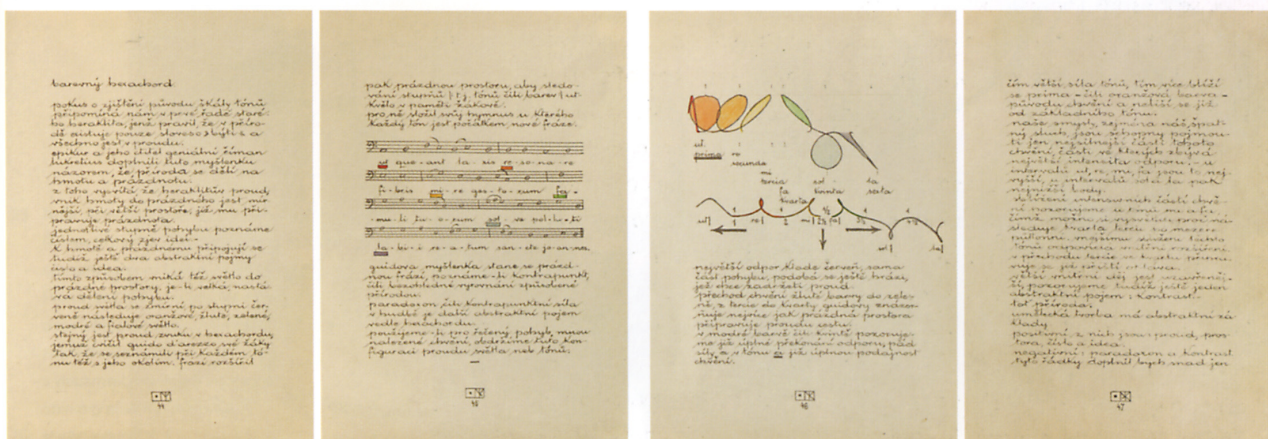 barevný hexachord
pokus o zjištění původu škály tónů
připomíná nám v prvé řadě staré-
ho heraklita, jenž pravil, že v příro-
dě existuje pouze sloveso býti a
všechno jest v proudu.
epikur a jeho ctitel geniální říman
lukretius doplnili tuto myšlenku
názorem, že příroda se dělí na
hmotu a prázdnotu.
z toho vysvítá, že heraklitův proud,
vnik hmoty do prázdného jest mír-
nější, při větší prostoře, již mu při-
pravuje prázdnota.
jednotlivé stupně pohybu poznáme
číslem, celkový zjev ideí.
k hmotě a prázdnému připojují se
tudíž ještě dva abstraktní pojmy
číslo a idea.
tímto způsobem vniká též světlo do
prázdné prostory, je-li velká, nastá-
vá dělení pohybu.
proud světla se zmírní po stupni čer-
veně následuje oranžové, žluté, zelené,
modré a fialové světlo.
stejný jest proud zvuku v hexachordu,
jemuž učil guido d'arezzo své žáky
tak, že se seznámili při každém tó-
nu též s jeho okolím. frázi rozšířil
44
pak prázdnou prostoru, aby sledo-
vání stupňů (t.j. tónů čili barev) ut-
kvělo v paměti žákově.
pro ně složil svůj hymnus u kterého
každý tón jest počátkem nové fráze.
ut que-ant la-xis re-so-na-re
fi-bris mi-ra ges-to-rum fa-
mu-li tu-o-rum sol-ve pol-lu-ti
la-bi-i re-a-tum san-cte jo-an-nes
guidova myšlenka stane se prázd-
nou frází, neznáme-li kontrapunkt,
čili bezohledné vyrovnání způsobené
přírodou.
paradoxon čili kontrapunktní síla
v hudbě je další abstraktní pojem
vedle hexachordu.
použijeme-li pro řečený pohyb, mnou
nalezené chvění, obdržíme tuto kon-
figuraci proudu světla neb tónů.
45
ut
prima
re
secunda
mi
tercia
fa
kvarta
sol
kvinta
la
sexta
největší odpor klade červeň, sama
část pohybu, podobá se ještě hrázi,
jež chce zadržeti proud.
přechod chvění žluté barvy do zele-
né, z tercie do kvarty, guidovy, znázor-
ňuje nejvíce jak prázdná prostora
připravuje proudu cestu.
v modré barvě čili kvintě pozoruje-
me již úplné překonání odporu, pád
síly, a v tónu
již úplnou poddajnost
chvění.
46
čím větší síla tónů, tím více blíží
se prima - čili oranžová barva -
původu chvění a neliší se již
od základního tónu.
naše smysly, zejména náš špat-
ný sluch, jsou schopny pojmou-
ti jen nejsilnější části tohoto
chvění, části ve kterých zbývá
největší intenzita odporu, - u
intervalů ut, re, mi, fa jsou to nej-
vyšší, u intervalů sol a la pak
nejnižší body.
větší vnitřní děj jest uzavřeněj-
ší, pozorujeme tudíž ještě jeden
abstraktní pojem: kontrast.
toť příroda:
umělecká tvorba má abstraktní zá-
klady
positivní z nich jsou: proud, pros-
tora, číslo a idea.
negativní: paradoxon a kontrast
tyto řádky doplnil bych snad jen
47